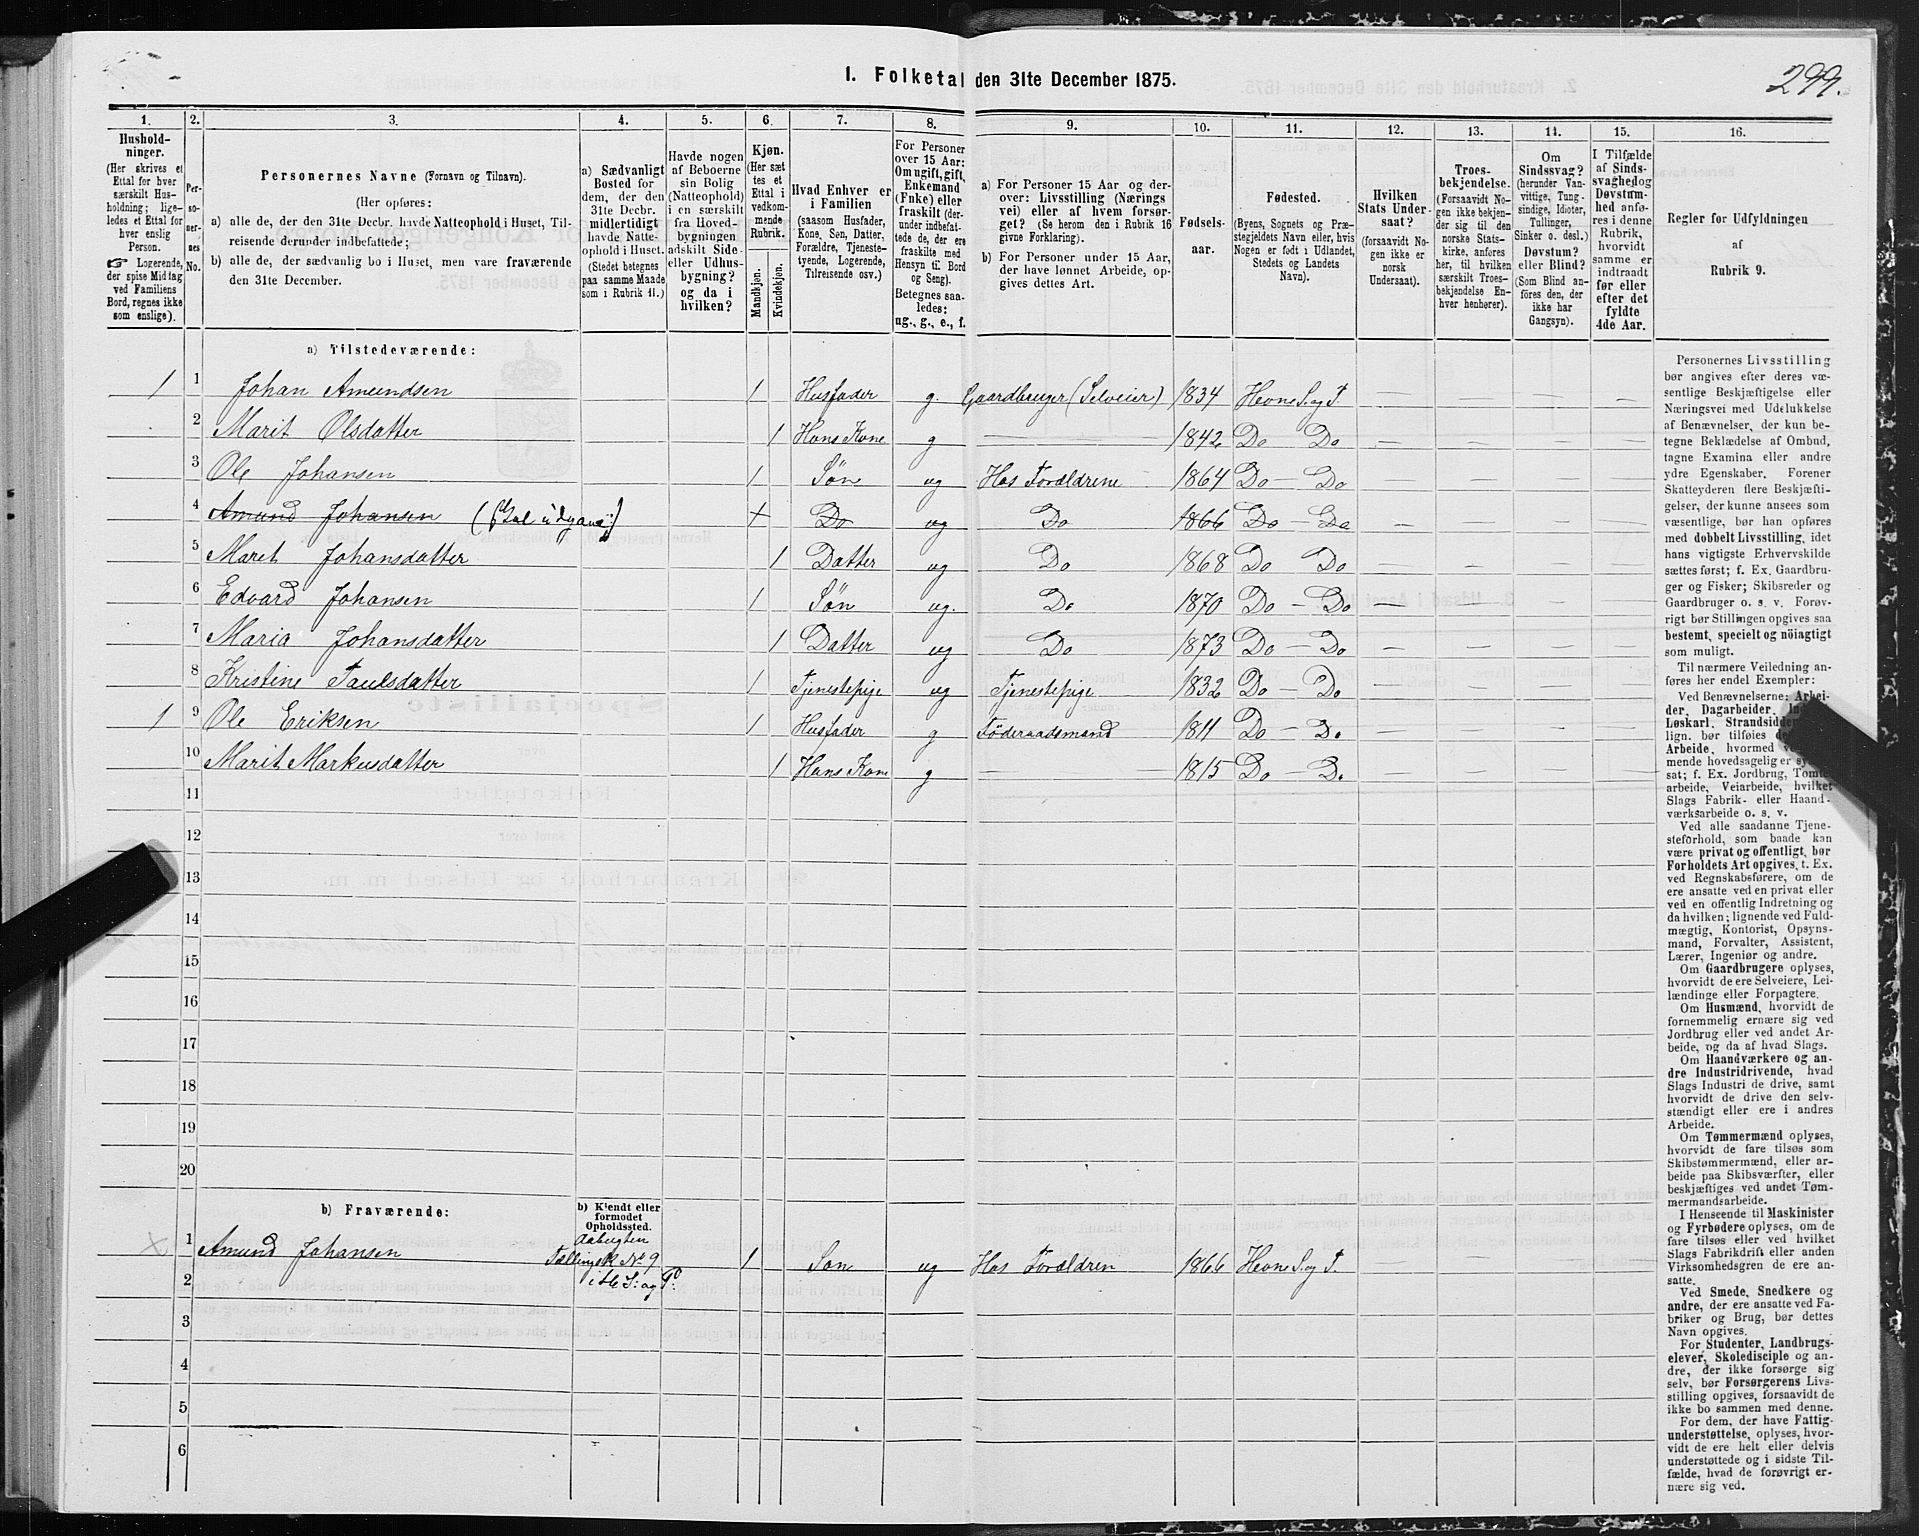 I. Folketal den 31te December 1875.
299.
1.
Husholdninger.
(Her skrives et
Ettal for hver
særskilt Husholdning; ligeledes et Ettal for
hver enslig
Person.
☞ Logerende,
der spise Middag
ved Familiens
Bord, regnes ikke
som enslige).
2.
Personernes
No.
3.
Personernes Navne (Fornavn og Tilnavn).
(Her opføres:
a) alle de, der den 31te Decbr. havde Natteophold i Huset, Tilreisende derunder indbefattede;
b) alle de, der sædvanlig bo i Huset, men vare fraværende
den 31te December.
4.
a) Sædvanligt
Bosted for
dem, der den
31te Decbr.
midlertidigt
havde Natteophold i Huset.
(Stedet betegnes
paa samme Maade
som i Rubrik 11.)
5.
Havde nogen
af Beboerne
sin Bolig
(Natteophold)
i en særskilt
fra Hovedbygningen
adskilt Side-
eller Udhusbygning?
og da i
hvilken?
6.
Kjøn.
(Her sættes et
Ettal i
vedkommende
Rubrik.
Mandkjøn.
Kvindekjøn.
7.
Hvad Enhver er
i Familien
(saasom Husfader,
Kone, Søn, Datter,
Forældre, Tjenestetyende, Logerende,
Tilreisende osv.)
8.
For Personer
over 15 Aar:
Om ugift, gift,
Enkemand
(Enke) eller
fraskilt (derunder indbefattede de, der ere
fraskilte med
Hensyn til Bord
og Seng).
Betegnes saaledes:
ug., g., e., f.
9.
a) For Personer 15 Aar og derover: Livsstilling (Næringsvei) eller af hvem forsørget? (Se herom den i Rubrik 16
givne Forklaring).
b) For Personer under 15 Aar,
der have lønnet Arbeide, opgives dettes Art.
10.
Fødselsaar.
11.
Fødested.
(Byens, Sognets og Præstegjeldets Navn eller, hvis
Nogen er født i Udlandet,
Stedets og Landets
Navn).
12.
Hvilken
Stats Undersaat?
(forsaavidt Nogen ikke er
norsk
Undersaat).
13.
Troesbekjendelse.
(Forsaavidt Nogen ikke bekjender sig til den
norske Statskirke, anføres
her, til hvilken
særskilt Troesbekjendelse Enhver henhører).
14.
Om
Sindssvag?
(herunder Vanvittige, Tungsindige, Idioter,
Tullinger,
Sinker o. desl.)
Døvstum?
eller Blind?
(Som Blind anføres den, der
ikke har
Gangsyn).
15.
I Tilfælde
af Sindssvaghed og
Døvstumhed anføres i denne
Rubrik,
hvorvidt
samme er
indtraadt
før eller
efter det
fyldte
4de Aar.
16.
Regler for Udfyldningen
af
Rubrik 9.
a) Tilstedeværende:
1 1 Johan Amundsen 1 Husfader g. Gaardbruger (Selveier) 1834 Hevne S. og P. — — — —
2 Marit Olsdatter 1 Hans Kone g — 1842 Do — Do — — — —
3 Ole Johansen 1 Søn ug Hos Forældrene 1864 Do — Do — — — —
4 Amund Johansen (skal udgaae) + Do ug Do 1866 Do — Do — — — —
5 Maret Johansdatter 1 Datter ug Do 1868 Do Do — — — —
6 Edvard Johansen 1 Søn ug. Do 1870 Do — Do — — — —
7 Maria Johansdatter 1 Datter ug Do 1873 Do — Do — — — —
8 Kristine Paulsdatter 1 Tjenestepige ug Tjenestepige 1832 Do — Do — — — —
1 9 Ole Eriksen 1 Husfader g Föderaadsmand 1811 Do — Do — — — —
10 Marit Markusdatter 1 Hans Kone g — 1815 Do — Do — — — —
11
12
13
14
15
16
17
18
19
20
b) Fraværende:
b) Kjendt eller
formodet
Opholdssted.
x 1 Amund Johansen 1 Søn ug Hos Forældren 1866 Hevne S. og P. — —
No 9
2
3
4
5
6
Personernes Livsstilling
bør angives efter deres væsentlige Beskjæftigelse eller
Næringsvei med Udelukkelse
af Benævnelser, der kun betegne Beklædelse af Ombud,
tagne Examina eller andre
ydre Egenskaber. Forener
Skatteyderen flere Beskjæftigelser, der kunne ansees som
væsentlige, bør han opføres
med dobbelt Livsstilling, idet
hans vigtigste Erhvervskilde
sættes først; f. Ex. Gaardbruger og Fisker; Skibsreder og
Gaardbruger o. s. v. Forøvrigt bør Stillingen opgives saa
bestemt, specielt og nöiagtigt
som muligt.
Til nærmere Veiledning anføres her endel Exempler:
Ved Benævnelserne: Arbeider, Dagarbeider,
Løskarl, Strandsidder
lign. bør tilføies
Arbeide, hvormed
mende hovedsagelig er
sat; f. Ex. Jordbrug, Tømmerarbeide, Veiarbeide, hvilket
Slags Fabrik- eller Haandværksarbeide o. s. v.
Ved alle saadanne Tjenesteforhold, som baade kan
være privat og offentligt, bør
Forholdets Art opgives, t. Ex.
ved Regnskabsførere, om de
ere ansatte ved en privat eller
ved en offentlig Indretning og
da hvilken; lignende ved Fuldmægtig, Kontorist, Opsynsmand, Forvalter, Assistent,
Lærer, Ingeniør og andre.
Om Gaardbrugere oplyses,
hvorvidt de ere Selveiere, Leilændinge eller Forpagtere.
Om Husmænd, hvorvidt de
fornemmelig ernære sig ved
Jordbrug eller ved andet Arbeide, og da af hvad Slags.
Om Haandværkere og andre Industridrivende, hvad
Slags Industri de drive, samt
hvorvidt de drive den selvstændigt eller ere i andres
Arbeide.
Om Tømmermænd oplyses,
hvorvidt de fare tilsøs som
Skibstømmermænd, eller arbeide paa Skibsværfter, eller
beskjæftiges ved andet Tømmermandsarbeide.
I Henseende til Maskinister
og Fyrbødere oplyses, om de
fare tilsøs eller ved hvilket
Slags Fabrikdrift eller anden
Virksomhedsgren de ere ansatte.
Ved Smede, Snedkere og
andre, der ere ansatte ved Fabriker og Brug, bør dettes
Navn opgives.
For Studenter, Landbrugselever, Skoledisciple og andre, der ikke forsørge sig
selv, bør Forsørgerens Livsstilling opgives, forsaavidt de
ikke bo sammen med denne.
For dem, der have Fattigunderstøttelse, oplyses, hvorvidt de ere helt eller delvis
understøttede og i sidste Tilfælde, hvad de forøvrigt ernære sig ved.